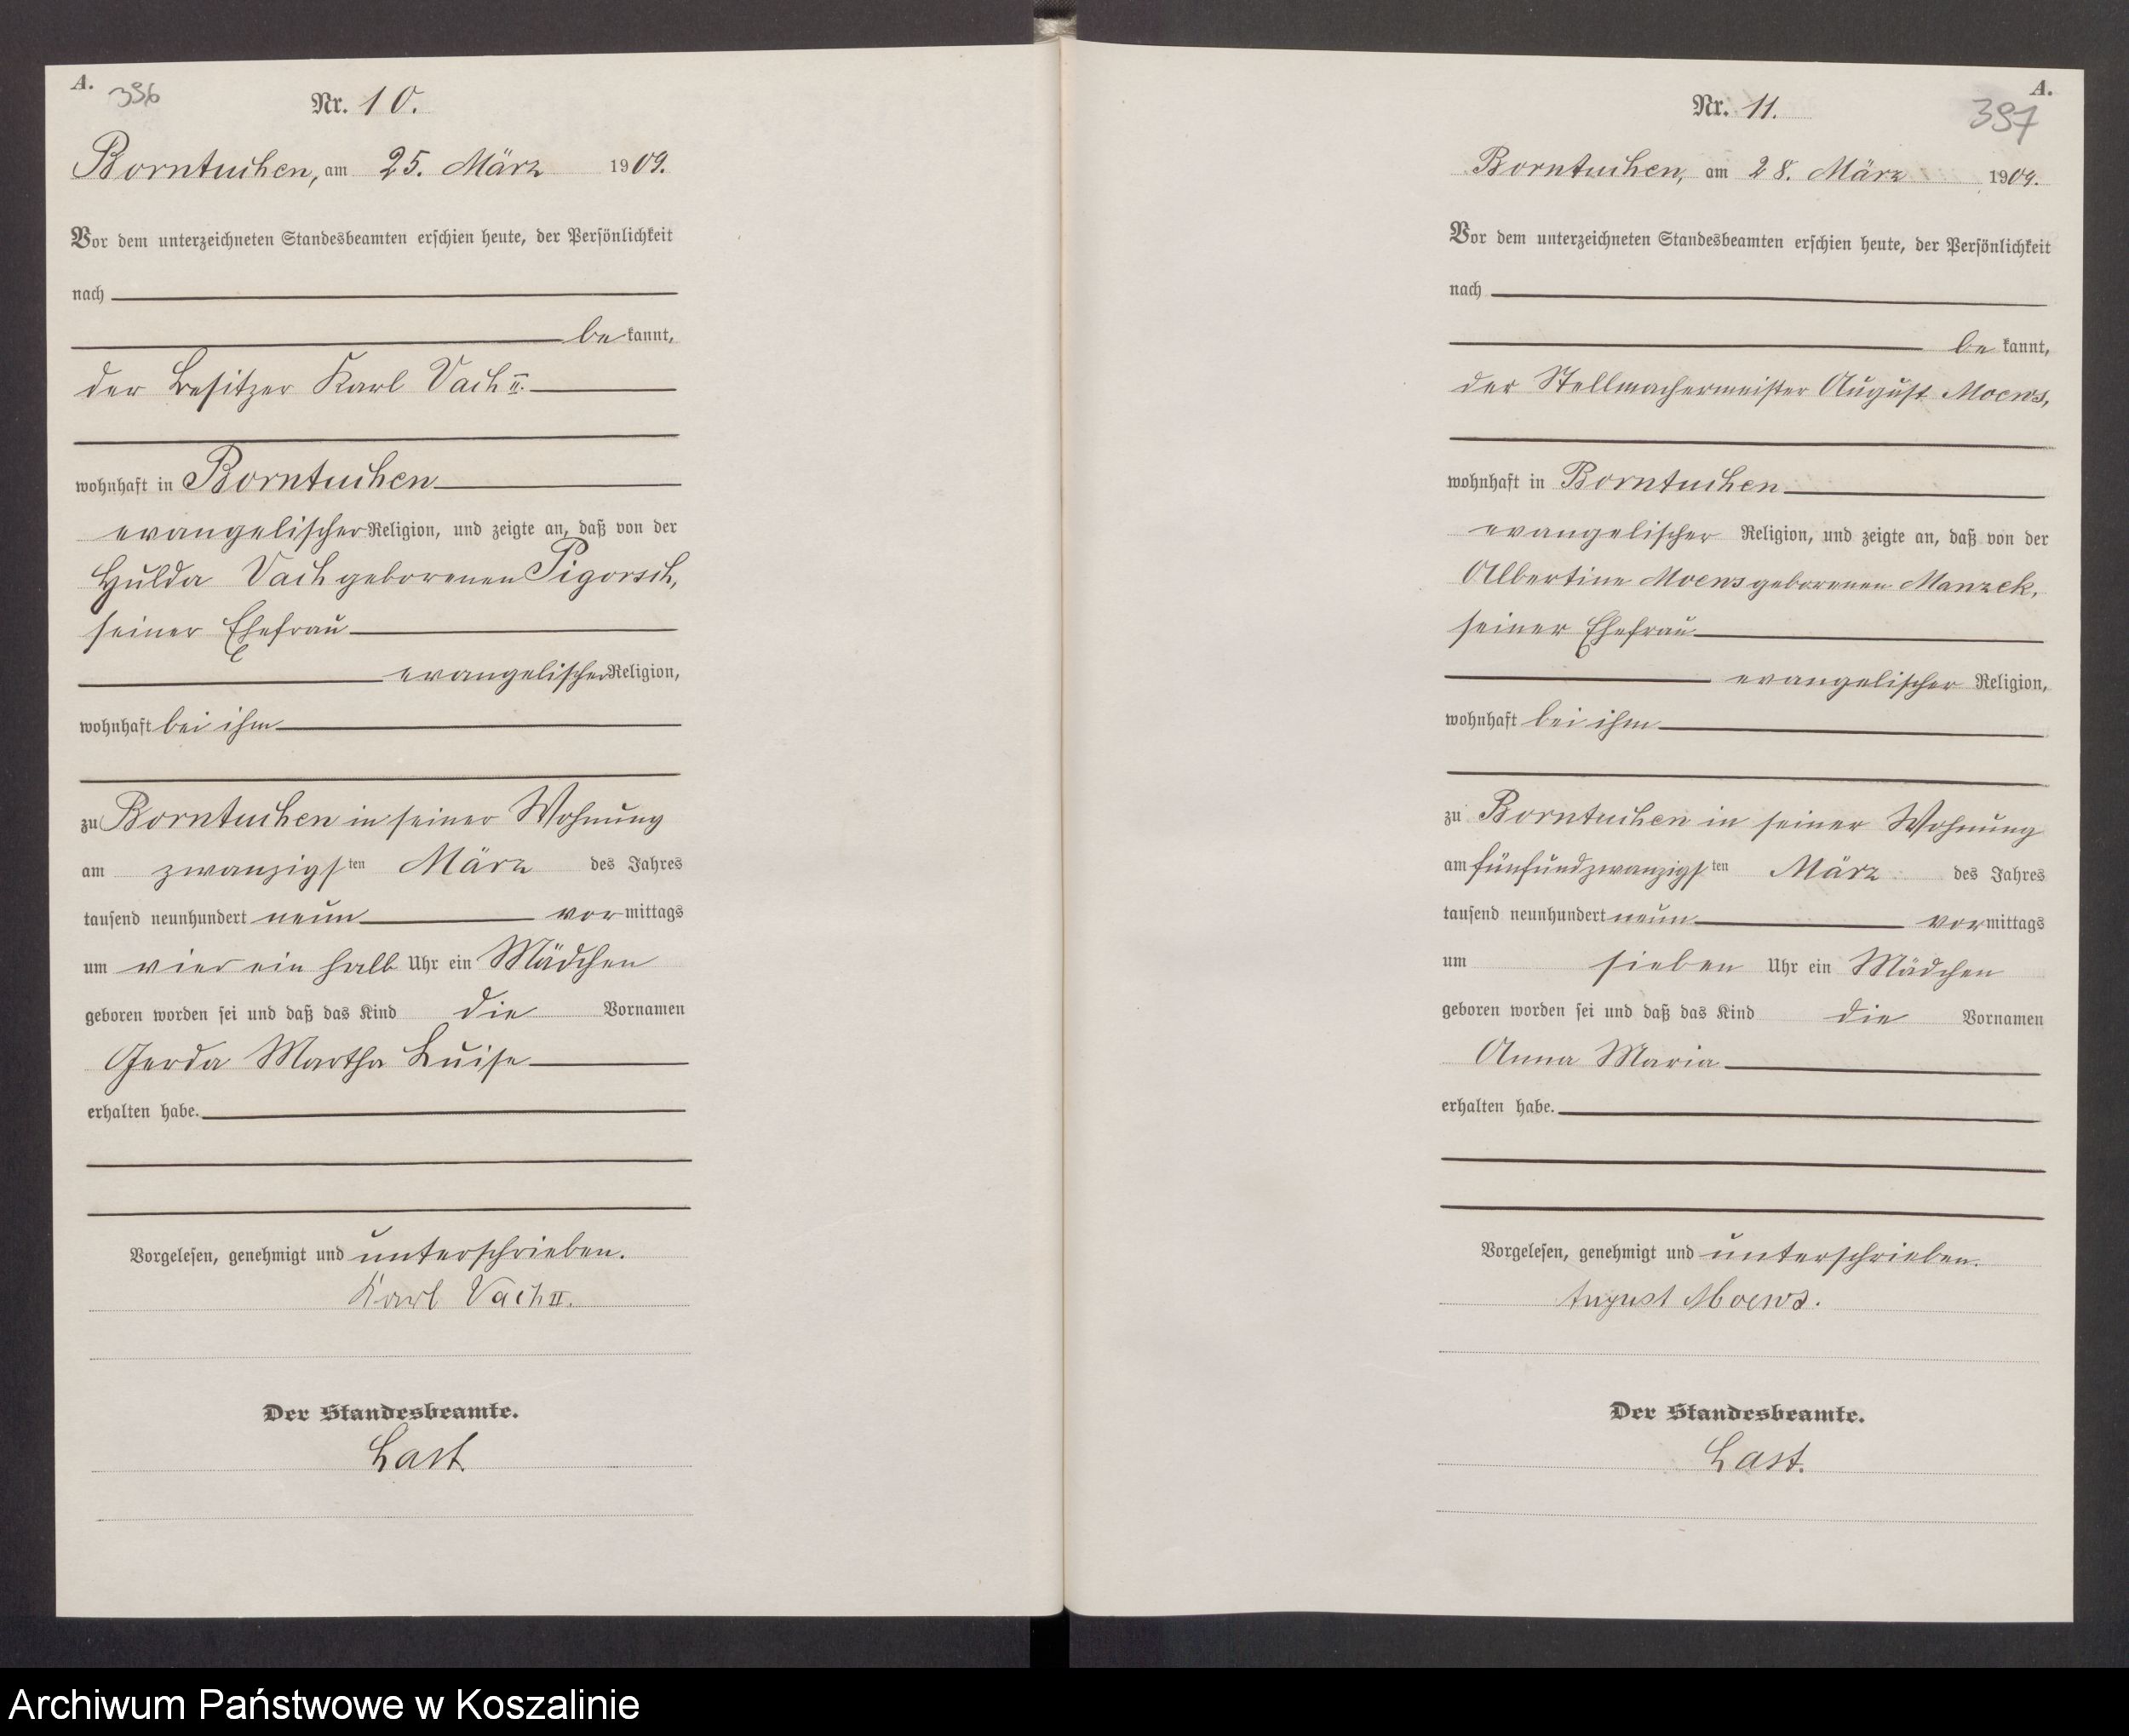 A.
396
Nr. 10.
Borntuchen, am 25. März 1909.
Vor dem unterzeichneten Standesbeamten erschien heute, der Persönlichkeit
nach
be kannt,
der Besitzer Karl Vach II.
wohnhaft in Borntuchen
evangelischer Religion, und zeigte an, daß von der
Hulda Vach geborenen Pigorsch,
seiner Ehefrau
evangelischer Religion,
wohnhaft bei ihm
zu Borntuchen in seiner Wohnung
am zwanzigsten März des Jahres
tausend neunhundert neun vormittags
um vier ein halb Uhr ein Mädchen
geboren worden sei und daß das Kind die Vornamen
Gerda Martha Luise
erhalten habe.
Vorgelesen, genehmigt und unterschrieben.
Karl Vach II.
Der Standesbeamte.
Last.
A.
397
Nr. 11.
Borntuchen, am 28. März 1909.
Vor dem unterzeichneten Standesbeamten erschien heute, der Persönlichkeit
nach
be kannt,
der Stellmachermeister August Moews,
wohnhaft in Borntuchen
evangelischer Religion, und zeigte an, daß von der
Albertine Moews geborenen Manzek,
seiner Ehefrau
evangelischer Religion,
wohnhaft bei ihm
zu Borntuchen in seiner Wohnung
am fünfundzwanzigsten März des Jahres
tausend neunhundert neun vormittags
um sieben Uhr ein Mädchen
geboren worden sei und daß das Kind die Vornamen
Anna Maria
erhalten habe.
Vorgelesen, genehmigt und unterschrieben.
August Moews.
Der Standesbeamte.
Last.
Archiwum Państwowe w Koszalinie